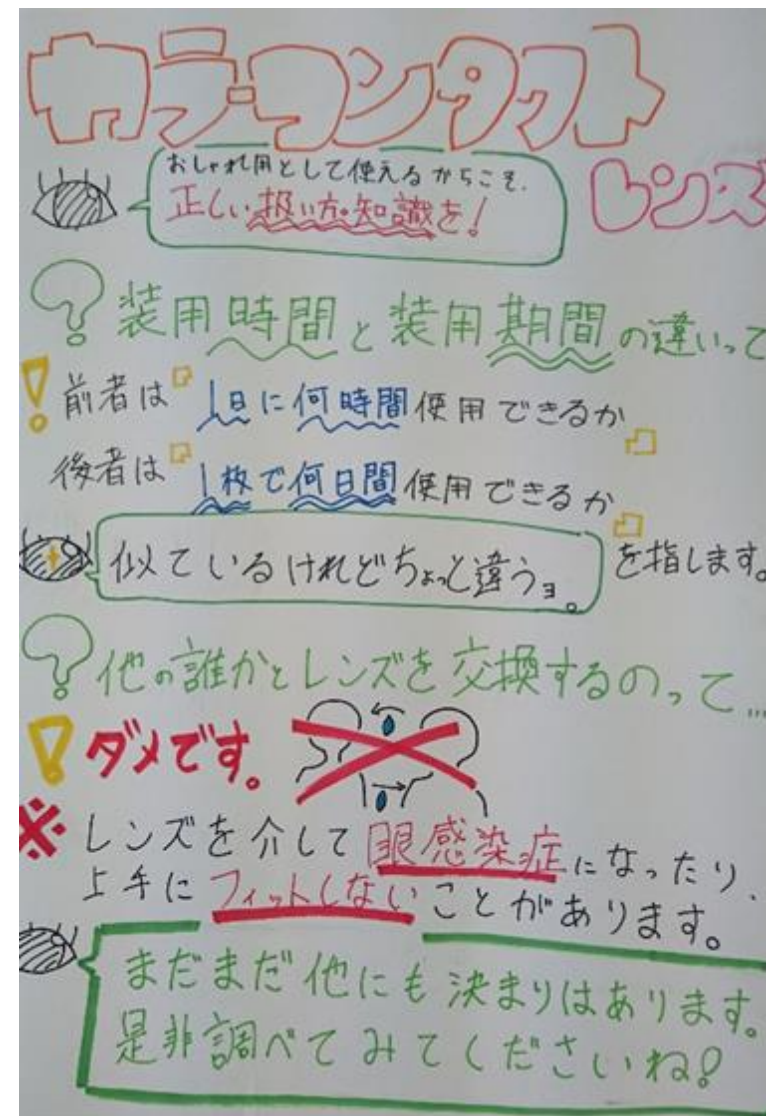 カラーコンタクト
レンズ
おしゃれ用として使えるからこそ、
正しい扱い方・知識を!
?装用時間と装用期間の違いって
!前者は「1日に何時間使用できるか」
後者は「1枚で何日間使用できるか」
を指します。
似ているけれどちょっと違うョ。
?他の誰かとレンズを交換するのって…
!ダメです。
※レンズを介して眼感染症になったり、
上手にフィットしないことがあります。
まだまだ他にも決まりはあります。
是非調べてみてくださいね!